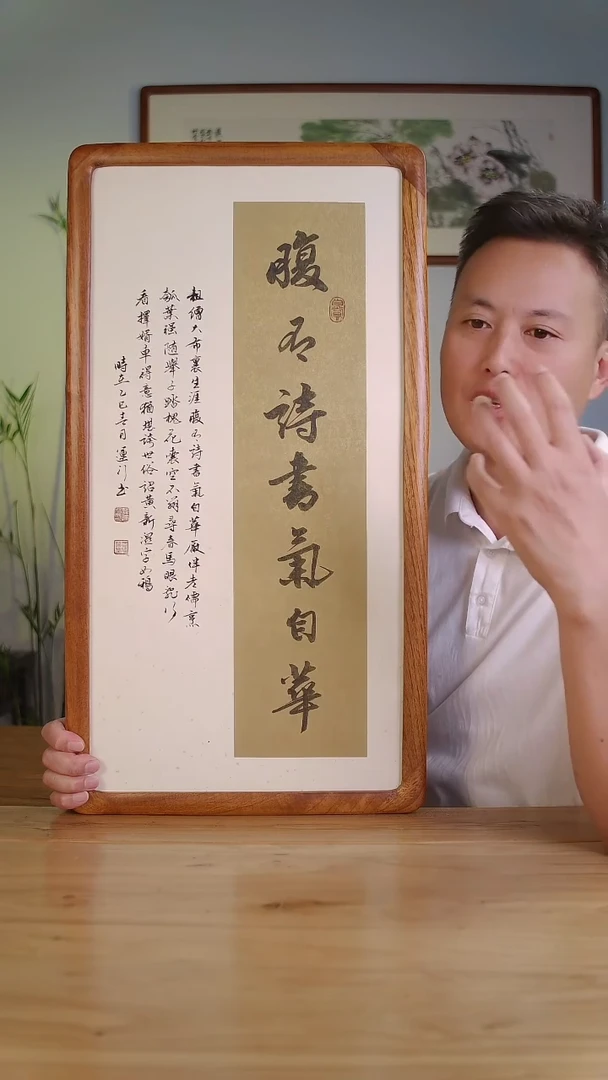 腹有詩書氣自華
粗繒大布裹生涯腹有詩書氣自華厭伴老儒烹
瓠葉強隨舉子踏槐花囊空不辦尋春馬眼亂行
看擇婿車得意猶堪誇世俗詔黃新濕字如鴉
時在乙巳